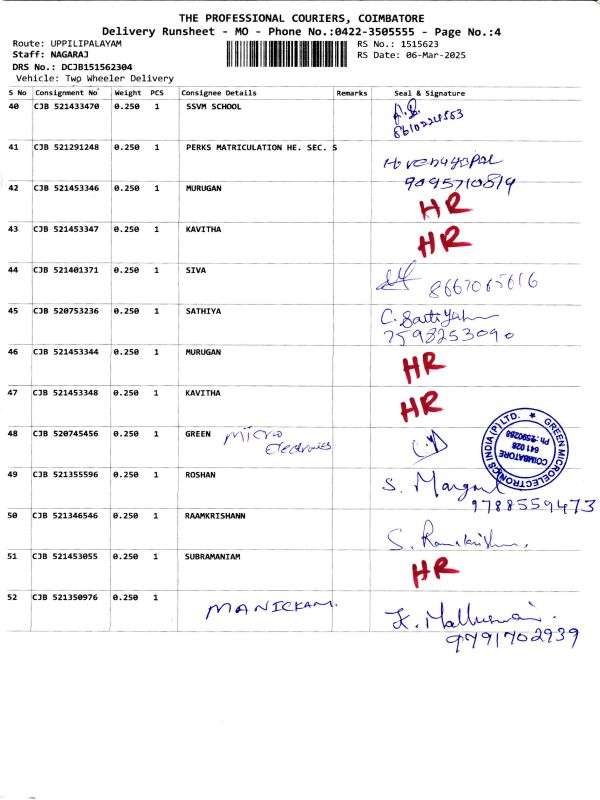 THE PROFESSIONAL COURIERS, COIMBATORE
Delivery Runsheet - MO - Phone No.:0422-3505555 - Page No.:4
Route: UPPILIPALAYAM RS No.: 1515623
Staff: NAGARAJ RS Date: 06-Mar-2025
DRS No.: DCJB151562304
Vehicle: Two Wheeler Delivery
S No Consignment No Weight PCS Consignee Details Remarks Seal & Signature
40 CJB 521433470 0.250 1 SSVM SCHOOL
41 CJB 521291248 0.250 1 PERKS MATRICULATION HE. SEC. S
9095710819
42 CJB 521453346 0.250 1 MURUGAN HR
43 CJB 521453347 0.250 1 KAVITHA HR
44 CJB 521401371 0.250 1 SIVA 8667065616
45 CJB 520753236 0.250 1 SATHIYA C. Sathiya
7598253090
46 CJB 521453344 0.250 1 MURUGAN HR
47 CJB 521453348 0.250 1 KAVITHA HR
48 CJB 520745456 0.250 1 GREEN Micro
Electronics
GREEN MICROELECTRONICS INDIA (P) LTD.
COIMBATORE
641 028
49 CJB 521355596 0.250 1 ROSHAN S.
9788559473
50 CJB 521346546 0.250 1 RAAMKRISHANN S. Ramakrishnan
51 CJB 521453055 0.250 1 SUBRAMANIAM HR
52 CJB 521350976 0.250 1 MANICKAM.
9791702939